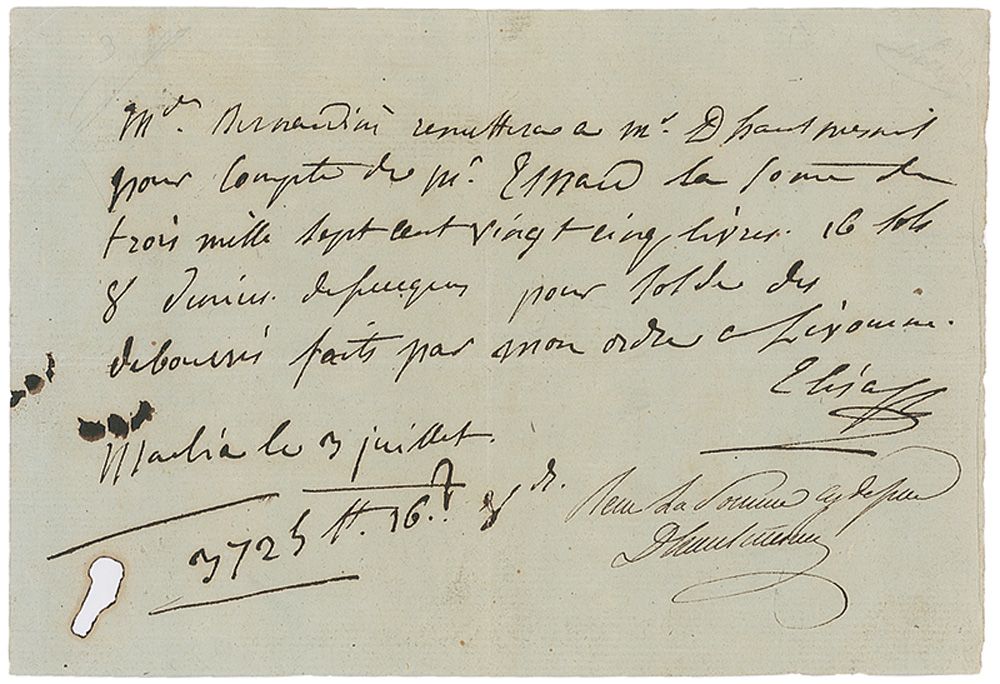 Md. Bernardini remettera a Mr. Dhautmesnil
pour Compte de Mr. Eynard la Some de
trois mille sept cent vingt cinq livres. 16 sols
8 deniers. de Lucques pour solde des
deboursés faits par mon ordre a Livourne.
Elisa
Marlia le 3 juillet.
3725 tt. 16.s 8 drs.
Recu La Somme cy dessus
Dhautmesnil